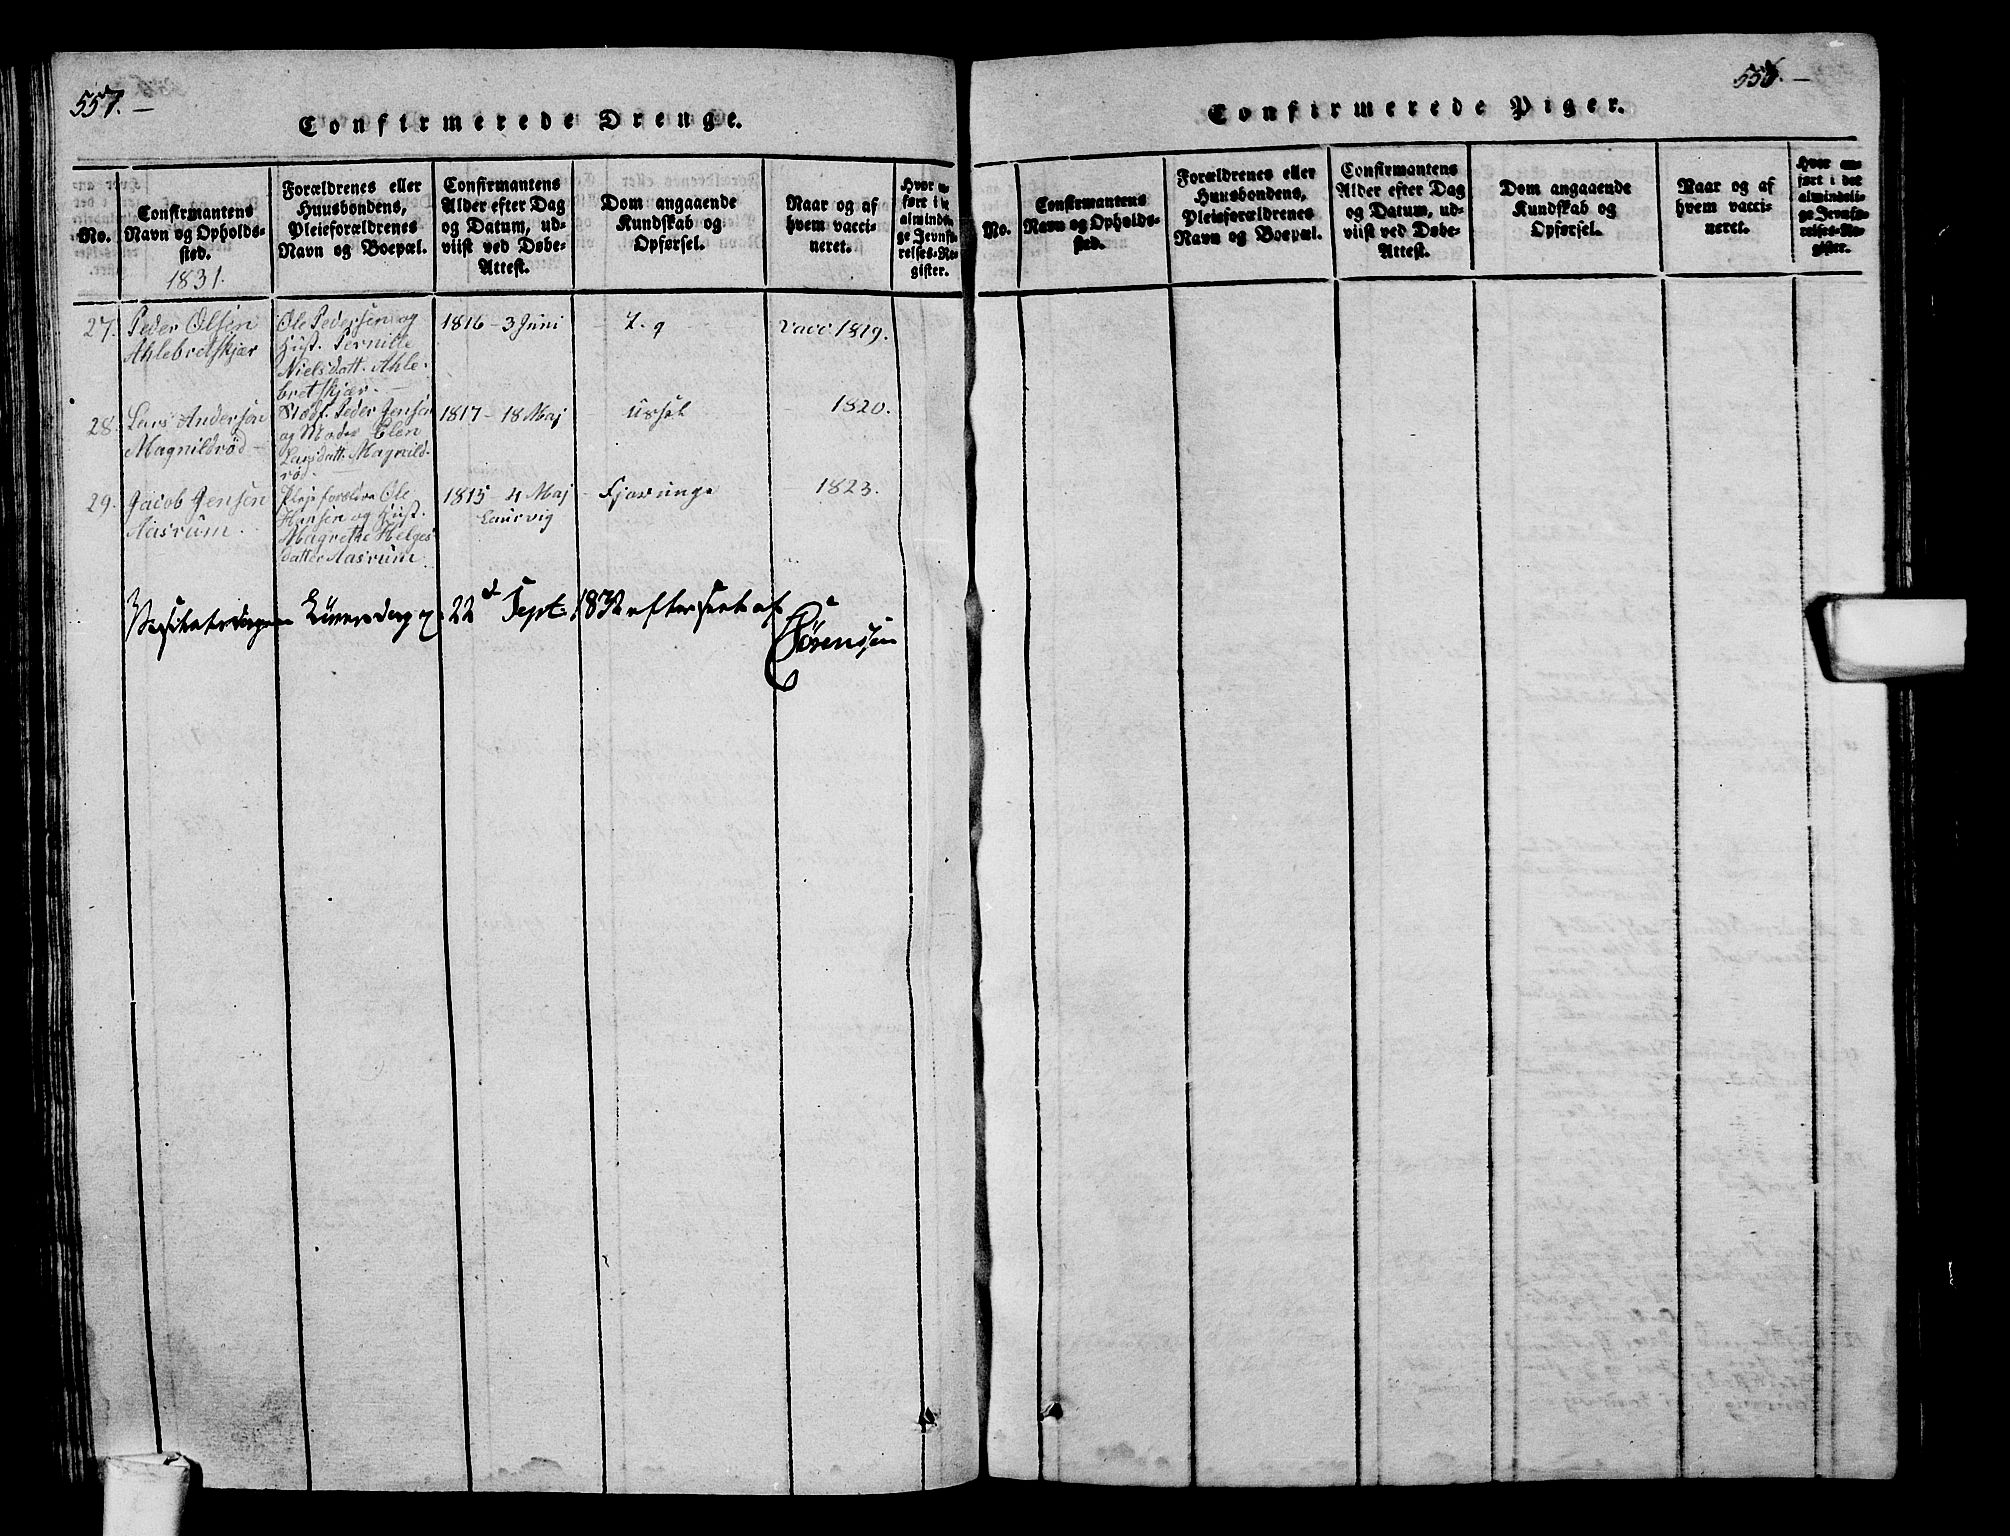 557. —
Confirmerede Drenge.
No.
Confirmantens
Navn og Opholds-
sted.
1831.
Forældrenes eller
Huusbondens,
Pleieforældrenes
Navn og Boepæl.
Confirmantens
Alder efter Dag
og Datum, ud-
viist ved Døbe-
Attest.
Dom angaaende
Kundskab og
Opførsel.
Naar og af
hvem vacci-
neret.
Hvor
ført i
alminde
ge Jevnfø
relses-Re-
gister.
27.
Peder Olsen
Ahlebretskjær
Ole Pedersen og
Hust. Pernille
Nielsdatt. Ahle-
bretskjær. —
1816 - 3 Juni
vacc. 1819.
28
Lars Andersen
Magnildrød —
Stedf. Peder Jensen
og Moder Elen
Larsdatt. Magnild-
rød.
1817 - 18 Maj
1820.
29.
Jacob Jensen
Aasrum.
Plejeforældre Ole
Hansen og Hust.
Magrethe Helges-
datter Aasrum.
1815 - 4 Maj
Laurvig
1823.
22 Sept. 1832 efterseet af
Sørenssen
558. —
Confirmerede Piger.
No.
Confirmantens
Navn og Opholds-
sted.
Forældrenes eller
Huusbondens,
Pleieforældrenes
Navn og Boepæl.
Confirmantens
Alder efter Dag
og Datum, ud-
viist ved Døbe-
Attest.
Dom angaaende
Kundskab og
Opførsel.
Naar og af
hvem vacci-
neret.
Hvor an-
ført i det
almindeli-
ge Jevnfø-
relses-Re-
gister.